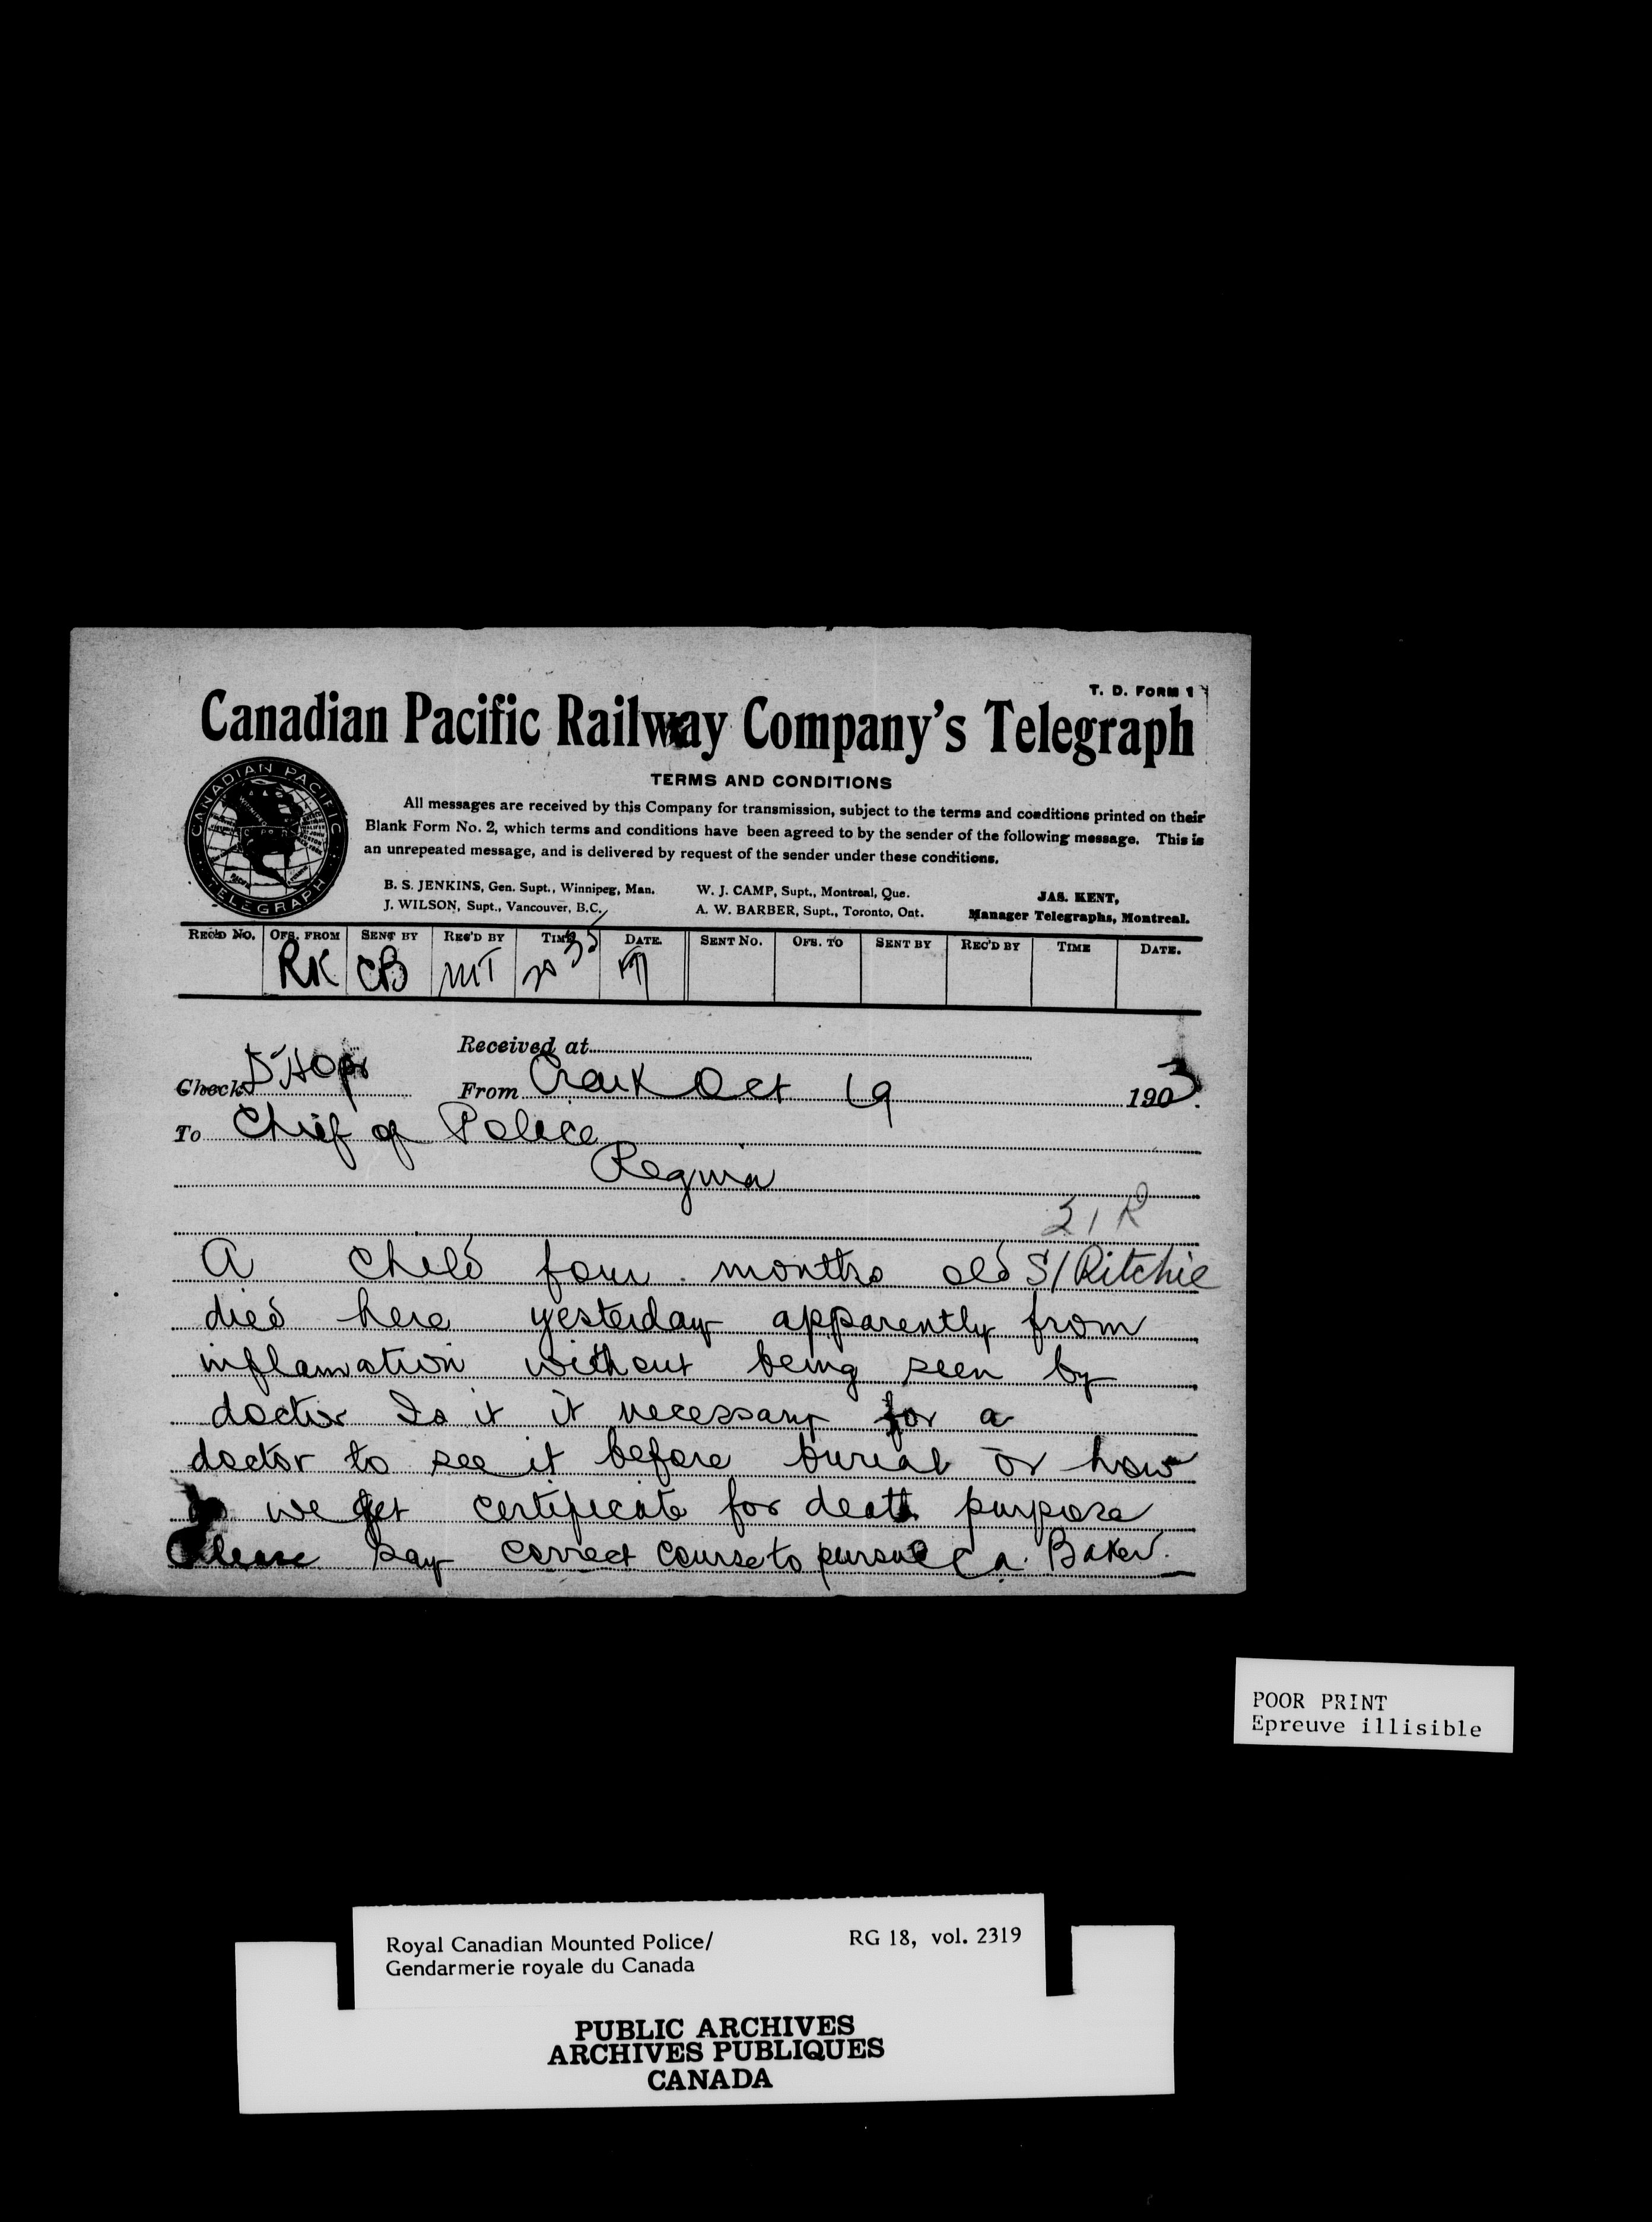 T. D. FORM 1
Canadian Pacific Railway Company's Telegraph
CANADIAN PACIFIC
TELEGRAPH
TERMS AND CONDITIONS
All messages are received by this Company for transmission, subject to the terms and conditions printed on their
Blank Form No. 2, which terms and conditions have been agreed to by the sender of the following message. This is
an unrepeated message, and is delivered by request of the sender under these conditions.
B. S. JENKINS, Gen. Supt., Winnipeg, Man. W. J. CAMP, Supt., Montreal, Que. JAS. KENT,
J. WILSON, Supt., Vancouver, B.C. A. W. BARBER, Supt., Toronto, Ont. Manager Telegraphs, Montreal.
REC'D NO. OFS. FROM SENT BY REC'D BY TIME DATE. SENT NO. OFS. TO SENT BY REC'D BY TIME DATE.
RK CB MT
Received at
Check From Craik Oct 19 1903.
To Chief of Police
Regina
A child four months old S/ Ritchie
died here yesterday apparently from
inflamation without being seen by
doctor Is it it necessary for a
doctor to see it before burial or how
we get certificate for death purpose
Please say correct course to pursue C a. Baker.
POOR PRINT
Epreuve illisible
Royal Canadian Mounted Police/ RG 18, vol. 2319
Gendarmerie royale du Canada
PUBLIC ARCHIVES
ARCHIVES PUBLIQUES
CANADA